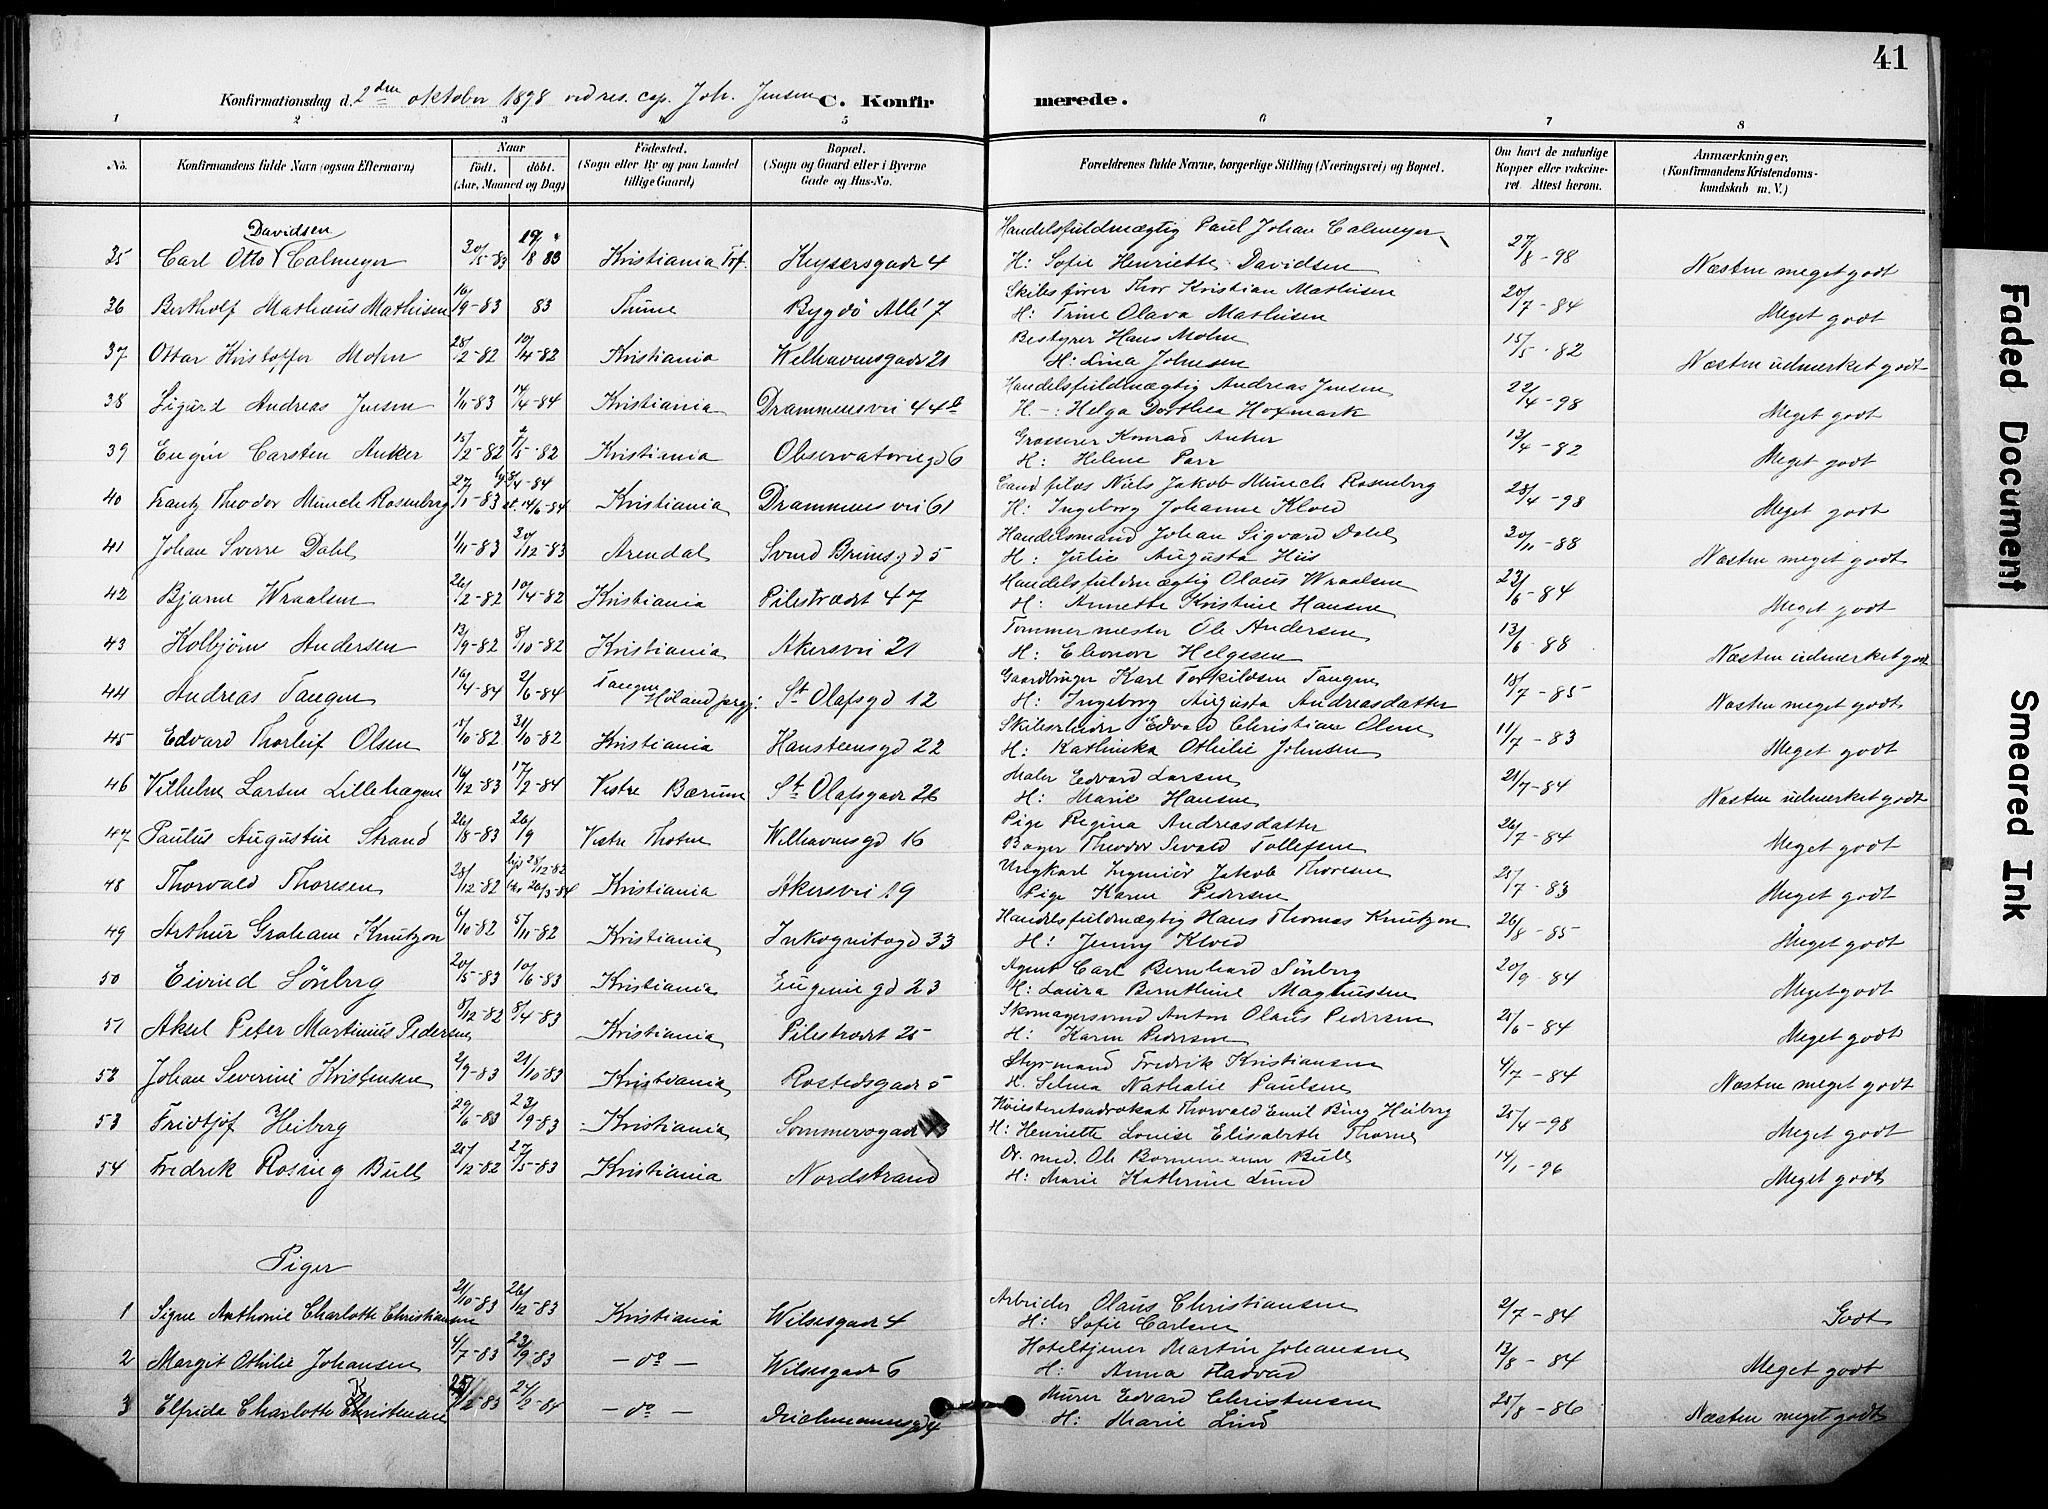 41
Konfirmationsdag d. 2den oktober 1898 ved res. cap. Joh. Jensen C. Konfirmerede.
1 2 3 4 5 6 7 8
No. Konfirmandens fulde Navn (ogsaa Efternavn) Naar født. døbt. (Aar, Maaned og Dag) Fødested. (Sogn eller By og paa Landet tillige Gaard) Bopæl. (Sogn og Gaard eller i Byerne Gade og Hus-No. Forældrenes fulde Navne, borgerlige Stilling (Næringsvei) og Bopæl. Om havt de naturlige Kopper eller vakcineret. Attest herom. Anmærkninger. (Konfirmandens Kristendomskundskab m. V.)
Davidsen 19/8 83 Handelsfuldmægtig Paul Johan Calmeyer
35 Carl Otto Calmeyer 30/5-83 Kristiania Trf. Keysersgade 4 H: Sofie Henriette Davidsen 27/8-98 Næsten meget godt
Skibsfører Thor Kristian Mathisen
36 Bertholf Mathæus Mathisen 16/9-83 83 Thime Bygdø Allé 7 H: Trine Olava Mathisen 20/7-84 Meget godt
Bestyrer Hans Mohn
37 Ottar Kristoffer Mohn 28/2-82 10/4-82 Kristiania Welhavensgade 21 H: Lina Johnsen 15/5-82 Næsten udmerket godt
Handelsfuldmægtig Andreas Jensen
38 Sigurd Andreas Jensen 1/11-83 14/4-84 Kristiania Drammensvei 44b H-: Helga Dorthea Hoxmark 22/4-98 Meget godt
Grosserer Konrad Anker
39 Eugen Carsten Anker 15/2-82 2/5-82 Kristiania Observatoriegd 6 H: Helene Parr 13/4-82 Meget godt
Cand. filos Niels Jakob Münch Rosenberg
40 Frantz Theodor Münch Rosenberg 27/11-83 14/6-84 Kristiania Drammensvei 61 H: Ingeborg Johanne Kloed 28/4-98 Meget godt
Handelsmand Johan Sigvard Dahl
41 Johan Sverre Dahl 1/11-83 30/12-83 Arendal Svend Brunsgd 5 H: Julie Augusta Huis 30/11-88 Næsten meget godt
Handelsfuldmægtig Olaus Wraalsen
42 Bjarne Wraalsen 26/2-82 10/4-82 Kristiania Pilestrædt 47 H: Annette Kristine Hansen 23/6-84 Meget godt
Tømmermester Ole Andersen
43 Kolbjørn Andersen 13/9-82 8/10-82 Kristiania Akersvei 21 H: Elionore Helgesen 13/6-88 Næsten udmerket godt
Gaardbruger Karl Torkildsen Tangen
44 Andreas Tangen 16/4-84 2/6-84 Tangen Høland prgj: St Olafsgd 12 H: Ingeborg Augusta Andreasdatter 18/7-85 Næsten meget godt
Edvard Christian Olsen
45 Edvard Thorleif Olsen 5/10-82 31/10-82 Kristiania Hansteensgd 22 H: Kathinka Othilie Johnsen 11/7-83 Meget godt
Maler Edvard Larsen
46 Vilhelm Larsen Lillehagen 16/12-83 17/2-84 Vestre Bærum St Olafsgade 26 H: Marie Hansen 21/7-84 Næsten udmerket godt
Pige Regina Andreasdatter
47 Paulus Augustin Strand 26/8-83 26/9 Vestre Thoten Welhavensgd 16 Bager Theodor Sivald Tollefsen 26/7-84 Meget godt
hjd 28/12-82 Ungkarl Ingeniør Jakob Thoresen
48 Thorvald Thoresen 28/12-82 26/3-84 Kristiania Akersvei 19 Pige Karen Pedersen 25/7-83 Meget godt
Handelsfuldmægtig Hans Thomas Knutzon
49 Arthur Graham Knutzon 6/10-82 5/11-82 Kristiania Inkognitogd 33 H: Jenny Kloed 26/8-85 Meget godt
Agent Carl Bernhard Sönberg
50 Eivind Sönberg 20/5-83 10/6-83 Kristiania Eugenie gd 23 H: Laura Bernthine Magnussen 20/9-84 Meget godt
Skomagersvend Anton Olaus Pedersen
51 Aksel Peter Martinius Pedersen 8/12-82 8/4-83 Kristiania Pilestrædt 25 H: Karen Pedersen 25/6-84 Meget godt
Styrmand Fredrik Kristiansen
52 Johan Severin Kristensen 2/9-83 21/10-83 Kristiania Rostedsgade 5 H. Selma Nathalie Paulsen 4/7-84 Næsten meget godt
Høiesteretsadvokat Thorvald Emil Bing Heiberg
53 Fridtjof Heiberg 29/6-83 23/9-83 Kristiania Sommerogade H: Henriette Louise Elisabeth Thorne 25/4-98 Meget godt
Dr. med. Ole Bornemann Bull
54 Fredrik Rosing Bull 25/12-82 27/5-83 Kristiania Nordstrand H: Marie Kathrine Lund 14/1-96 Meget godt
Piger
Arbeider Olaus Christiansen
1 Signe Anthonie Charlotte Christiansen 21/10-83 26/12-83 Kristiania Wilsesgade 4 H: Sofie Carlsen 2/7-84 Godt
Hoteltjener Martin Johansen
2 Margit Othilie Johansen 4/7-83 23/9-83 -do- Wilsesgade 6 H: Anna Hadvad 13/8-84 Meget godt
Murer Edvard Christensen
3 Elfrida Charlotte Christensen 25/12-83 24/2-84 -do- Deichmannsgd 4 H: Marie Lind 25/8-86 Næsten meget godt
Faded Document
Smeared Ink